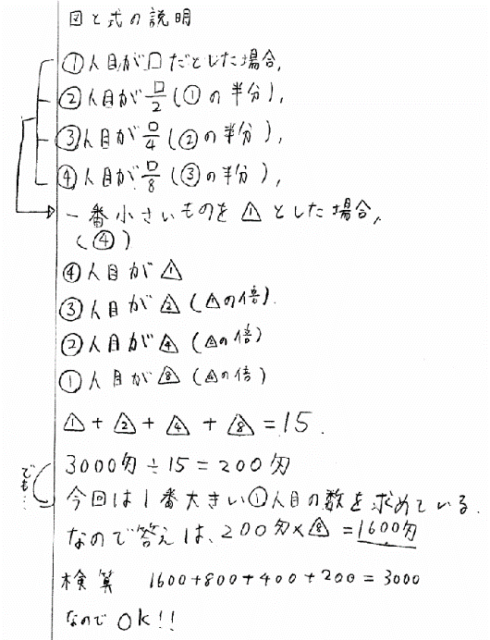 図と式の説明
①人目が□だとした場合,
②人目が□/2(①の半分),
③人目が□/4(②の半分),
④人目が□/8(③の半分),
一番小さいものを△1とした場合,
(④)
④人目が△1
③人目が△2(△1の倍).
②人目が△4(△2の倍)
①人目が△8(△4の倍)
△1+△2+△4+△8=15.
3000匁÷15=200匁
でも…
今回は1番大きい①人目の数を求めている.
なので答えは、200匁×△8=1600匁
検算 1600+800+400+200=3000
なのでOK!!